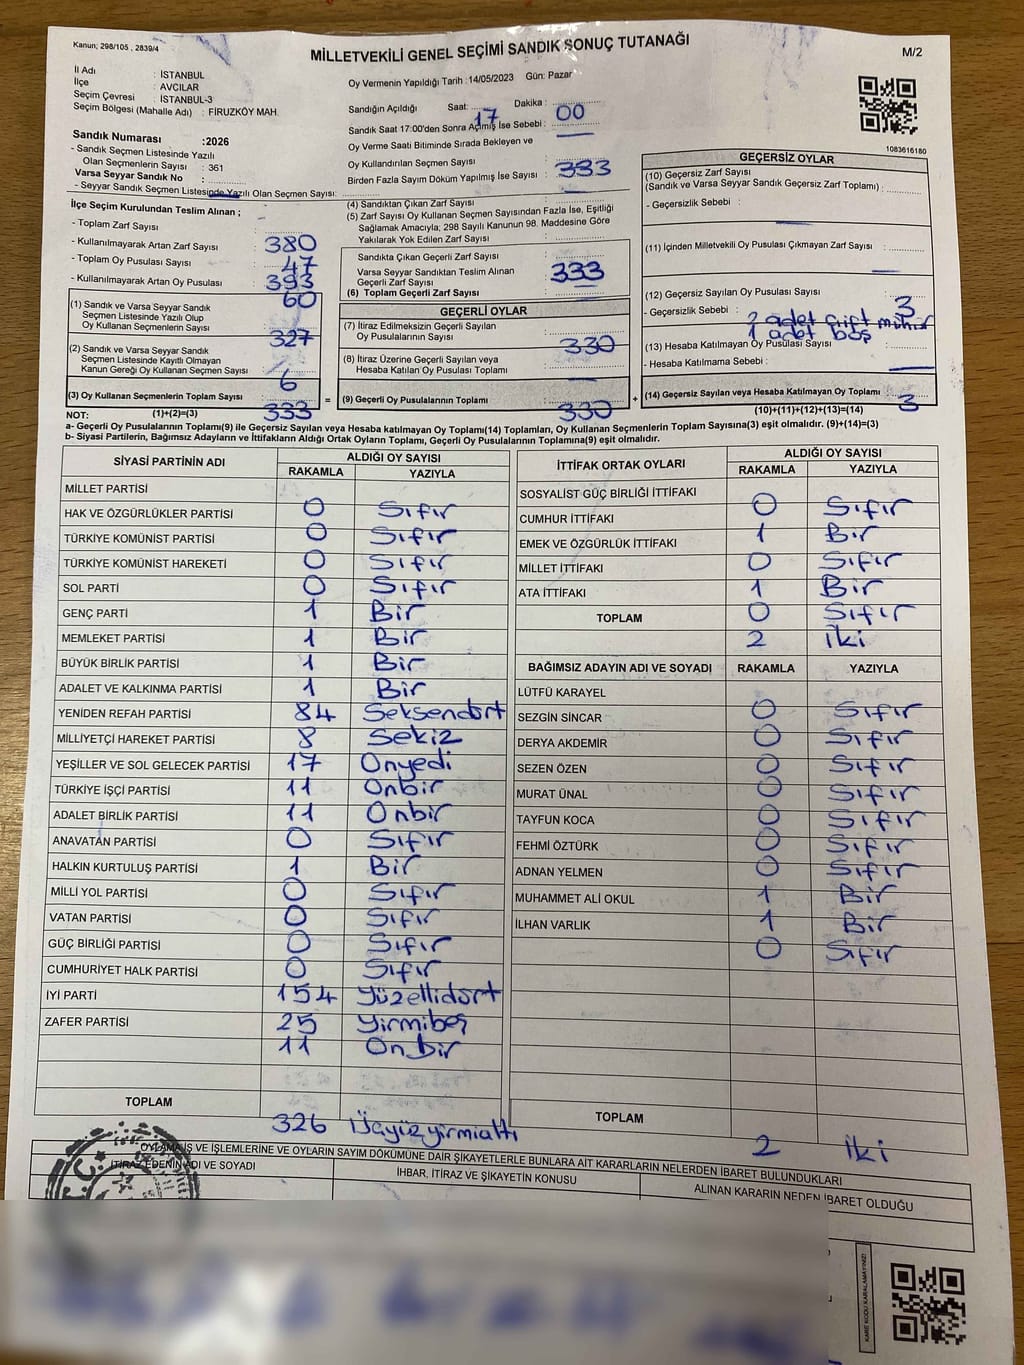 Kanun; 298/105 , 2839/4
MİLLETVEKİLİ GENEL SEÇİMİ SANDIK SONUÇ TUTANAĞI
M/2
İl Adı : İSTANBUL
İlçe : AVCILAR
Seçim Çevresi : İSTANBUL-3
Seçim Bölgesi (Mahalle Adı) : FİRUZKÖY MAH.
Oy Vermenin Yapıldığı Tarih :14/05/2023 Gün: Pazar
Sandığın Açıldığı Saat: 17 Dakika : 00
Sandık Saat 17:00'den Sonra Açılmış İse Sebebi :
Oy Verme Saati Bitiminde Sırada Bekleyen ve
Oy Kullandırılan Seçmen Sayısı
Birden Fazla Sayım Döküm Yapılmış İse Sayısı :
333
1083616180
Sandık Numarası :2026
- Sandık Seçmen Listesinde Yazılı
Olan Seçmenlerin Sayısı : 361
Varsa Seyyar Sandık No :
- Seyyar Sandık Seçmen Listesinde Yazılı Olan Seçmen Sayısı:
İlçe Seçim Kurulundan Teslim Alınan ;
- Toplam Zarf Sayısı
380
- Kullanılmayarak Artan Zarf Sayısı
47
- Toplam Oy Pusulası Sayısı
393
- Kullanılmayarak Artan Oy Pusulası
60
(1) Sandık ve Varsa Seyyar Sandık
Seçmen Listesinde Yazılı Olup
Oy Kullanan Seçmenlerin Sayısı
327
(2) Sandık ve Varsa Seyyar Sandık
Seçmen Listesinde Kayıtlı Olmayan
Kanun Gereği Oy Kullanan Seçmen Sayısı
6
(3) Oy Kullanan Seçmenlerin Toplam Sayısı
333
(1)+(2)=(3)
(4) Sandıktan Çıkan Zarf Sayısı
(5) Zarf Sayısı Oy Kullanan Seçmen Sayısından Fazla İse, Eşitliği
Sağlamak Amacıyla; 298 Sayılı Kanunun 98. Maddesine Göre
Yakılarak Yok Edilen Zarf Sayısı
Sandıkta Çıkan Geçerli Zarf Sayısı
Varsa Seyyar Sandıktan Teslim Alınan
Geçerli Zarf Sayısı
333
(6) Toplam Geçerli Zarf Sayısı
GEÇERLİ OYLAR
(7) İtiraz Edilmeksizin Geçerli Sayılan
Oy Pusulalarının Sayısı
330
(8) İtiraz Üzerine Geçerli Sayılan veya
Hesaba Katılan Oy Pusulası Toplamı
= (9) Geçerli Oy Pusulalarının Toplamı
330
GEÇERSİZ OYLAR
(10) Geçersiz Zarf Sayısı
(Sandık ve Varsa Seyyar Sandık Geçersiz Zarf Toplamı) :
- Geçersizlik Sebebi :
(11) İçinden Milletvekili Oy Pusulası Çıkmayan Zarf Sayısı
(12) Geçersiz Sayılan Oy Pusulası Sayısı
3
- Geçersizlik Sebebi : 2 adet çift mühür
1 adet boş
(13) Hesaba Katılmayan Oy Pusulası Sayısı
- Hesaba Katılmama Sebebi :
+ (14) Geçersiz Sayılan veya Hesaba Katılmayan Oy Toplamı
3
(10)+(11)+(12)+(13)=(14)
NOT:
a- Geçerli Oy Pusulalarının Toplamı(9) ile Geçersiz Sayılan veya Hesaba katılmayan Oy Toplamı(14) Toplamları, Oy Kullanan Seçmenlerin Toplam Sayısına(3) eşit olmalıdır. (9)+(14)=(3)
b- Siyasi Partilerin, Bağımsız Adayların ve İttifakların Aldığı Ortak Oyların Toplamı, Geçerli Oy Pusulalarının Toplamına(9) eşit olmalıdır.
SİYASİ PARTİNİN ADI
ALDIĞI OY SAYISI
RAKAMLA YAZIYLA
MİLLET PARTİSİ
0 Sıfır
HAK VE ÖZGÜRLÜKLER PARTİSİ
0 Sıfır
TÜRKİYE KOMÜNİST PARTİSİ
0 Sıfır
TÜRKİYE KOMÜNİST HAREKETİ
0 Sıfır
SOL PARTİ
1 Bir
GENÇ PARTİ
1 Bir
MEMLEKET PARTİSİ
1 Bir
BÜYÜK BİRLİK PARTİSİ
1 Bir
ADALET VE KALKINMA PARTİSİ
84 Seksendört
YENİDEN REFAH PARTİSİ
8 Sekiz
MİLLİYETÇİ HAREKET PARTİSİ
17 Onyedi
YEŞİLLER VE SOL GELECEK PARTİSİ
11 Onbir
TÜRKİYE İŞÇİ PARTİSİ
11 Onbir
ADALET BİRLİK PARTİSİ
0 Sıfır
ANAVATAN PARTİSİ
1 Bir
HALKIN KURTULUŞ PARTİSİ
0 Sıfır
MİLLİ YOL PARTİSİ
0 Sıfır
VATAN PARTİSİ
0 Sıfır
GÜÇ BİRLİĞİ PARTİSİ
0 Sıfır
CUMHURİYET HALK PARTİSİ
154 Yüzellidört
İYİ PARTİ
25 Yirmibeş
ZAFER PARTİSİ
11 Onbir
TOPLAM
326 Üçyüzyirmialtı
İTTİFAK ORTAK OYLARI
ALDIĞI OY SAYISI
RAKAMLA YAZIYLA
SOSYALİST GÜÇ BİRLİĞİ İTTİFAKI
0 Sıfır
CUMHUR İTTİFAKI
1 Bir
EMEK VE ÖZGÜRLÜK İTTİFAKI
0 Sıfır
MİLLET İTTİFAKI
1 Bir
ATA İTTİFAKI
0 Sıfır
TOPLAM
2 İki
BAĞIMSIZ ADAYIN ADI VE SOYADI RAKAMLA YAZIYLA
LÜTFÜ KARAYEL
0 Sıfır
SEZGİN SİNCAR
0 Sıfır
DERYA AKDEMİR
0 Sıfır
SEZEN ÖZEN
0 Sıfır
MURAT ÜNAL
0 Sıfır
TAYFUN KOCA
0 Sıfır
FEHMİ ÖZTÜRK
0 Sıfır
ADNAN YELMEN
1 Bir
MUHAMMET ALİ OKUL
1 Bir
İLHAN VARLIK
0 Sıfır
TOPLAM
2 İki
OYLAMA İŞ VE İŞLEMLERİNE VE OYLARIN SAYIM DÖKÜMÜNE DAİR ŞİKAYETLERLE BUNLARA AİT KARARLARIN NELERDEN İBARET BULUNDUKLARI
İTİRAZ EDENİN ADI VE SOYADI
İHBAR, İTİRAZ VE ŞİKAYETİN KONUSU
ALINAN KARARIN NEDEN İBARET OLDUĞU
KARE KODU KARALAMAYINIZ!